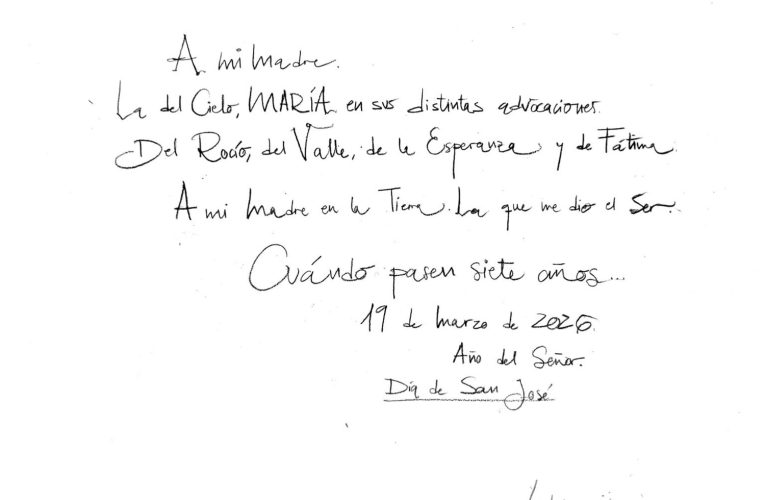 A mi madre.
La del Cielo, MARÍA en sus distintas advocaciones.
Del Rocío, del Valle, de la Esperanza y de Fátima.
A mi madre en la Tierra. La que me dio el Ser.
Cuándo pasen siete años...
19 de marzo de 2026.
Año del Señor.
Día de San José